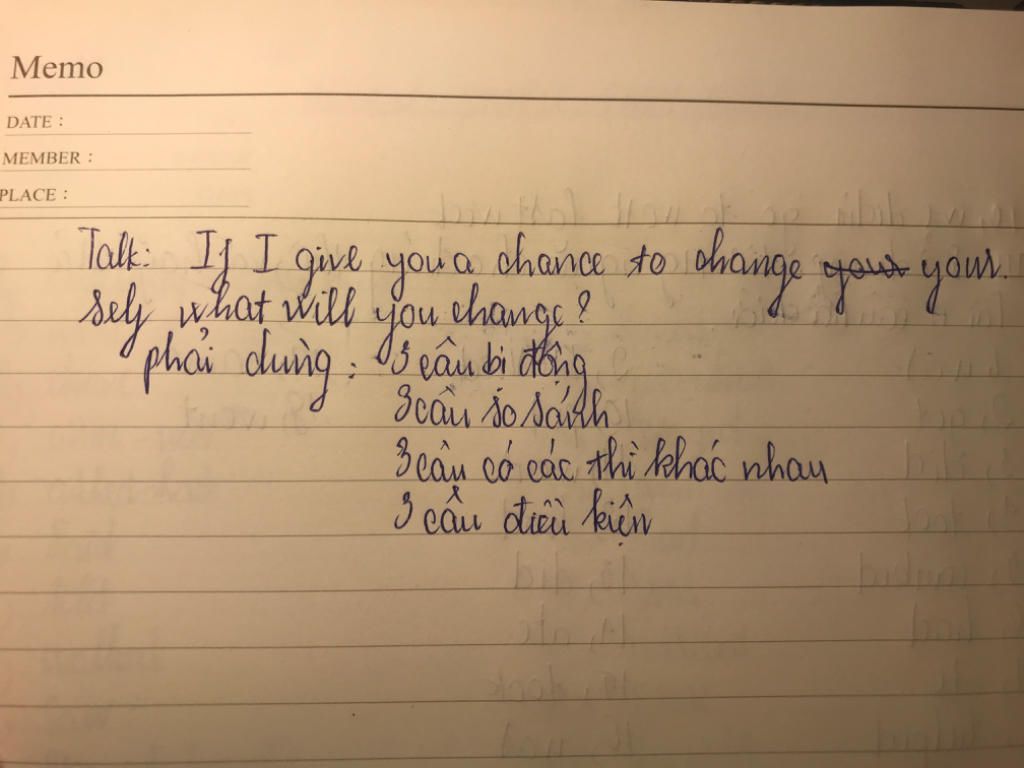 Memo
DATE :
MEMBER :
PLACE :
Talk: If I give you a chance to change your your.
self what will you change?
phải dùng : 3 câu bị động
3 câu so sánh
3 câu có các thì khác nhau
3 câu điều kiện